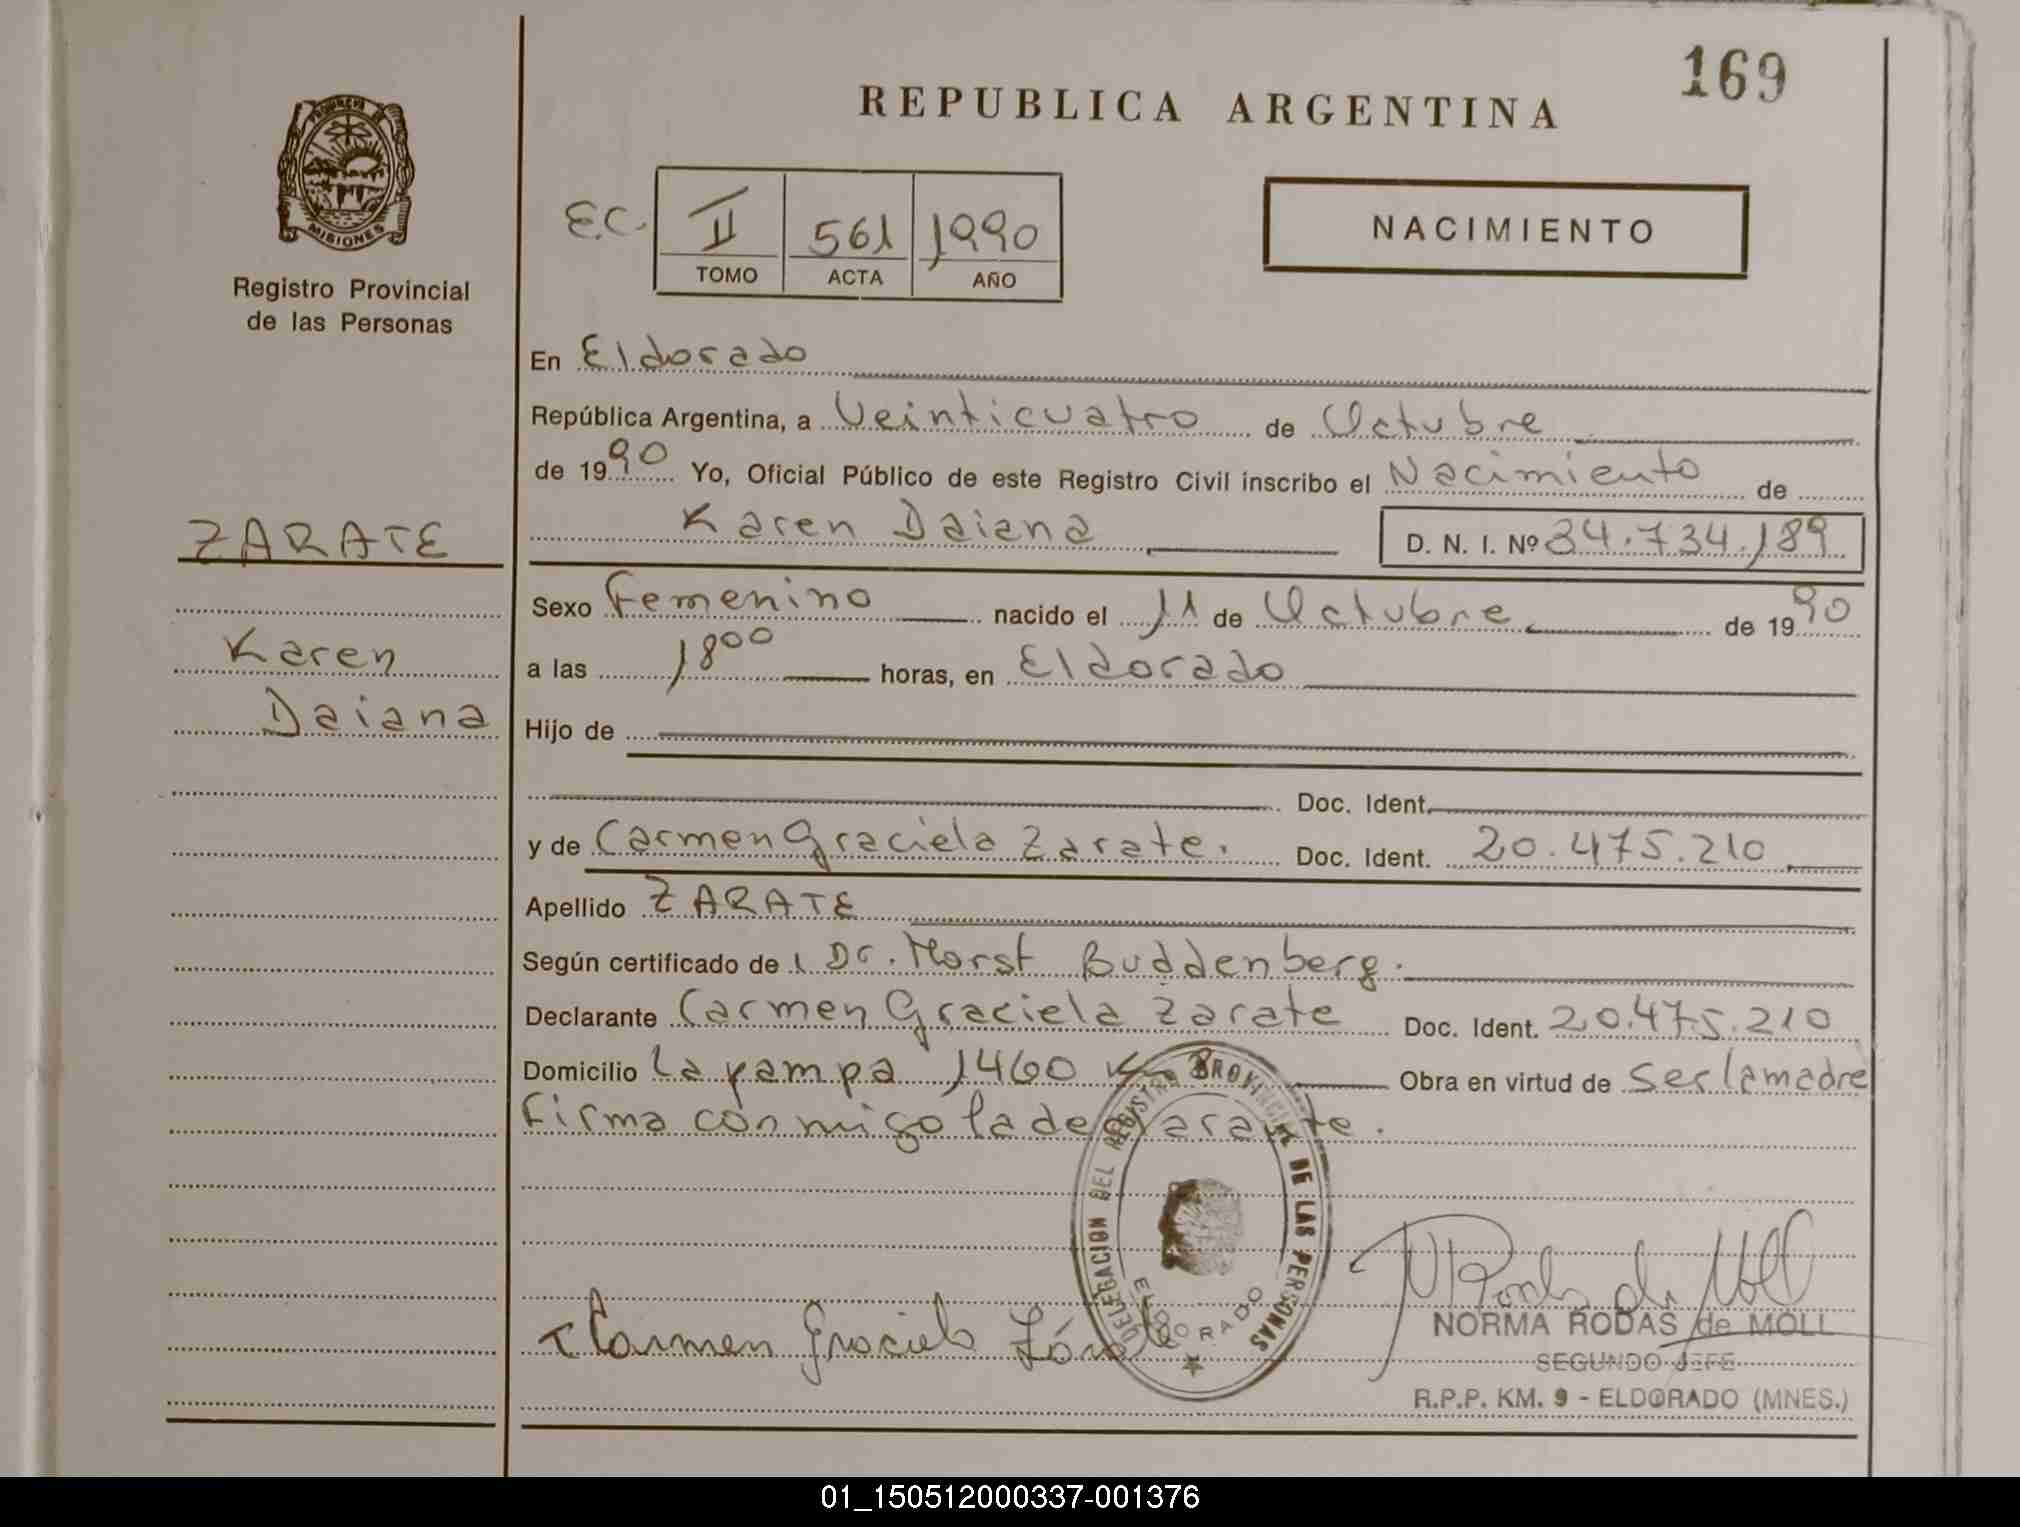 169
REPUBLICA ARGENTINA
PROVINCIA DE
MISIONES
Registro Provincial
de las Personas
E.C. II 561 1990
TOMO ACTA AÑO
NACIMIENTO
En Eldorado
República Argentina, a Veinticuatro de Octubre
de 1990 Yo, Oficial Público de este Registro Civil inscribo el Nacimiento de
Karen Daiana D. N. I. Nº 34.734.189
ZARATE
Karen
Daiana
Sexo Femenino nacido el 11 de Octubre de 1990
a las 18 00 horas, en Eldorado
Hijo de
Doc. Ident.
y de Carmen Graciela Zarate. Doc. Ident. 20.475.210
Apellido ZARATE
Según certificado de Dr. Horst Buddenberg.
Declarante Carmen Graciela Zarate Doc. Ident. 20.475.210
Domicilio La pampa 1460 Obra en virtud de ser la madre
Firma conmigo la declarante.
DELEGACION DEL REGISTRO PROVINCIAL DE LAS PERSONAS
ELDORADO
Carmen Graciela Zárate
N Rodas de Moll
NORMA RODAS de MOLL
SEGUNDO JEFE
R.P.P. KM. 9 - ELDORADO (MNES.)
01_150512000337-001376